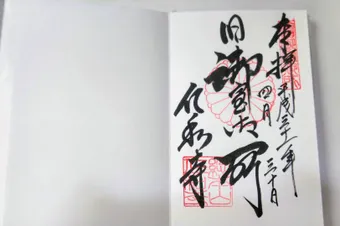 奉拝
平成三十一年
四月三十日
旧御室御所
仁和寺